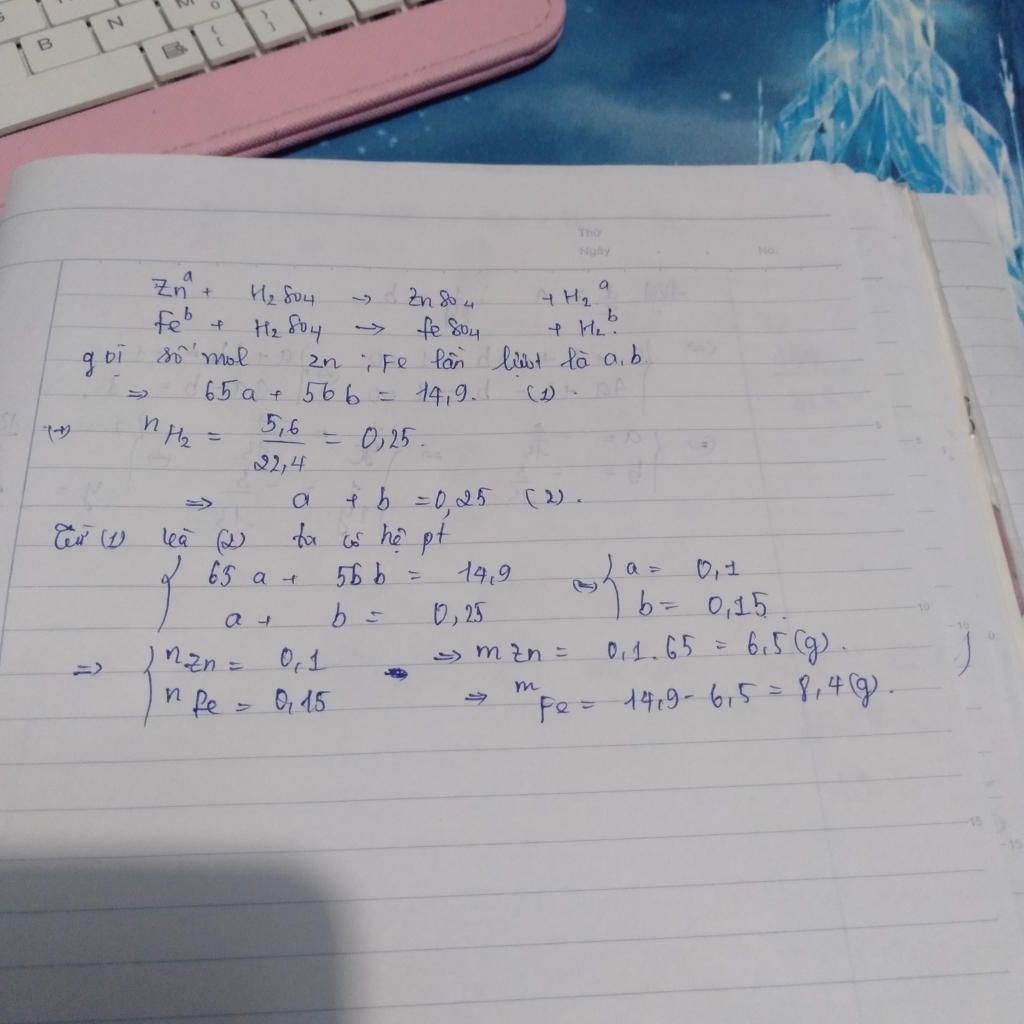 B N M
Thứ
Ngày No.
Zn^a + H₂SO₄ → ZnSO₄ + H₂^a
Fe^b + H₂SO₄ → FeSO₄ + H₂^b.
gọi số mol Zn ; Fe lần lượt là a, b.
⇒ 65a + 56b = 14,9. (1).
n H₂ = 5,6/22,4 = 0,25.
⇒ a + b = 0,25 (2).
Từ (1) và (2) ta có hệ pt
{ 65a + 56b = 14,9 ⇔ { a = 0,1
a + b = 0,25 b = 0,15
⇒ { n Zn = 0,1 ⇒ m Zn = 0,1.65 = 6,5(g).
n Fe = 0,15 ⇒ m Fe = 14,9 - 6,5 = 8,4(g).
5
10
15